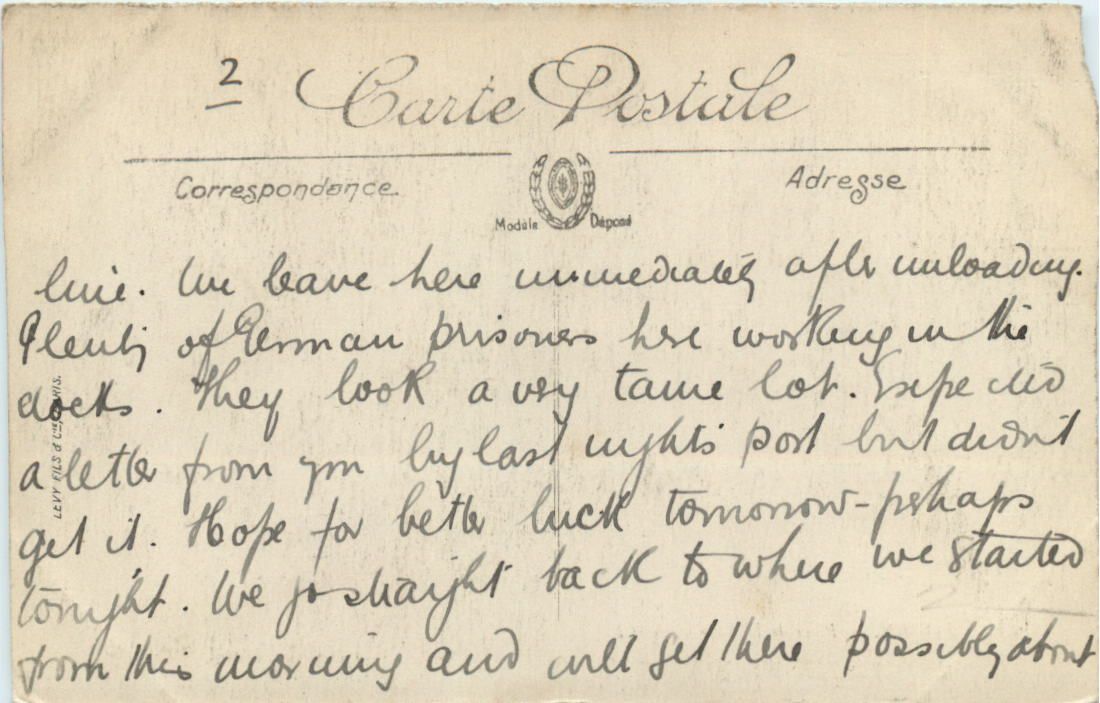 2
Carte Postale
Correspondance
Adresse
Modèle Déposé
line. We leave here immediately after unloading.
Plenty of German prisoners here working in the
docks. They look a very tame lot. Expected
a letter from you by last nights post but didn't
get it. Hope for better luck tomorrow - perhaps
tonight. We go straight back to where we started
from this morning and will get there possibly about
LEVY FILS & Cie, PARIS.